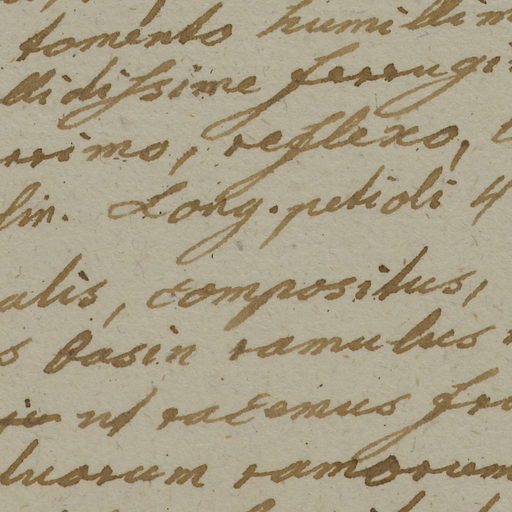 tomento humillim
llidissime ferrugi
rrimo, reflexo,
lin. Long. petioli 4
alis, compositus,
s basin ramulus
ut racemus fru
duorum ramorum